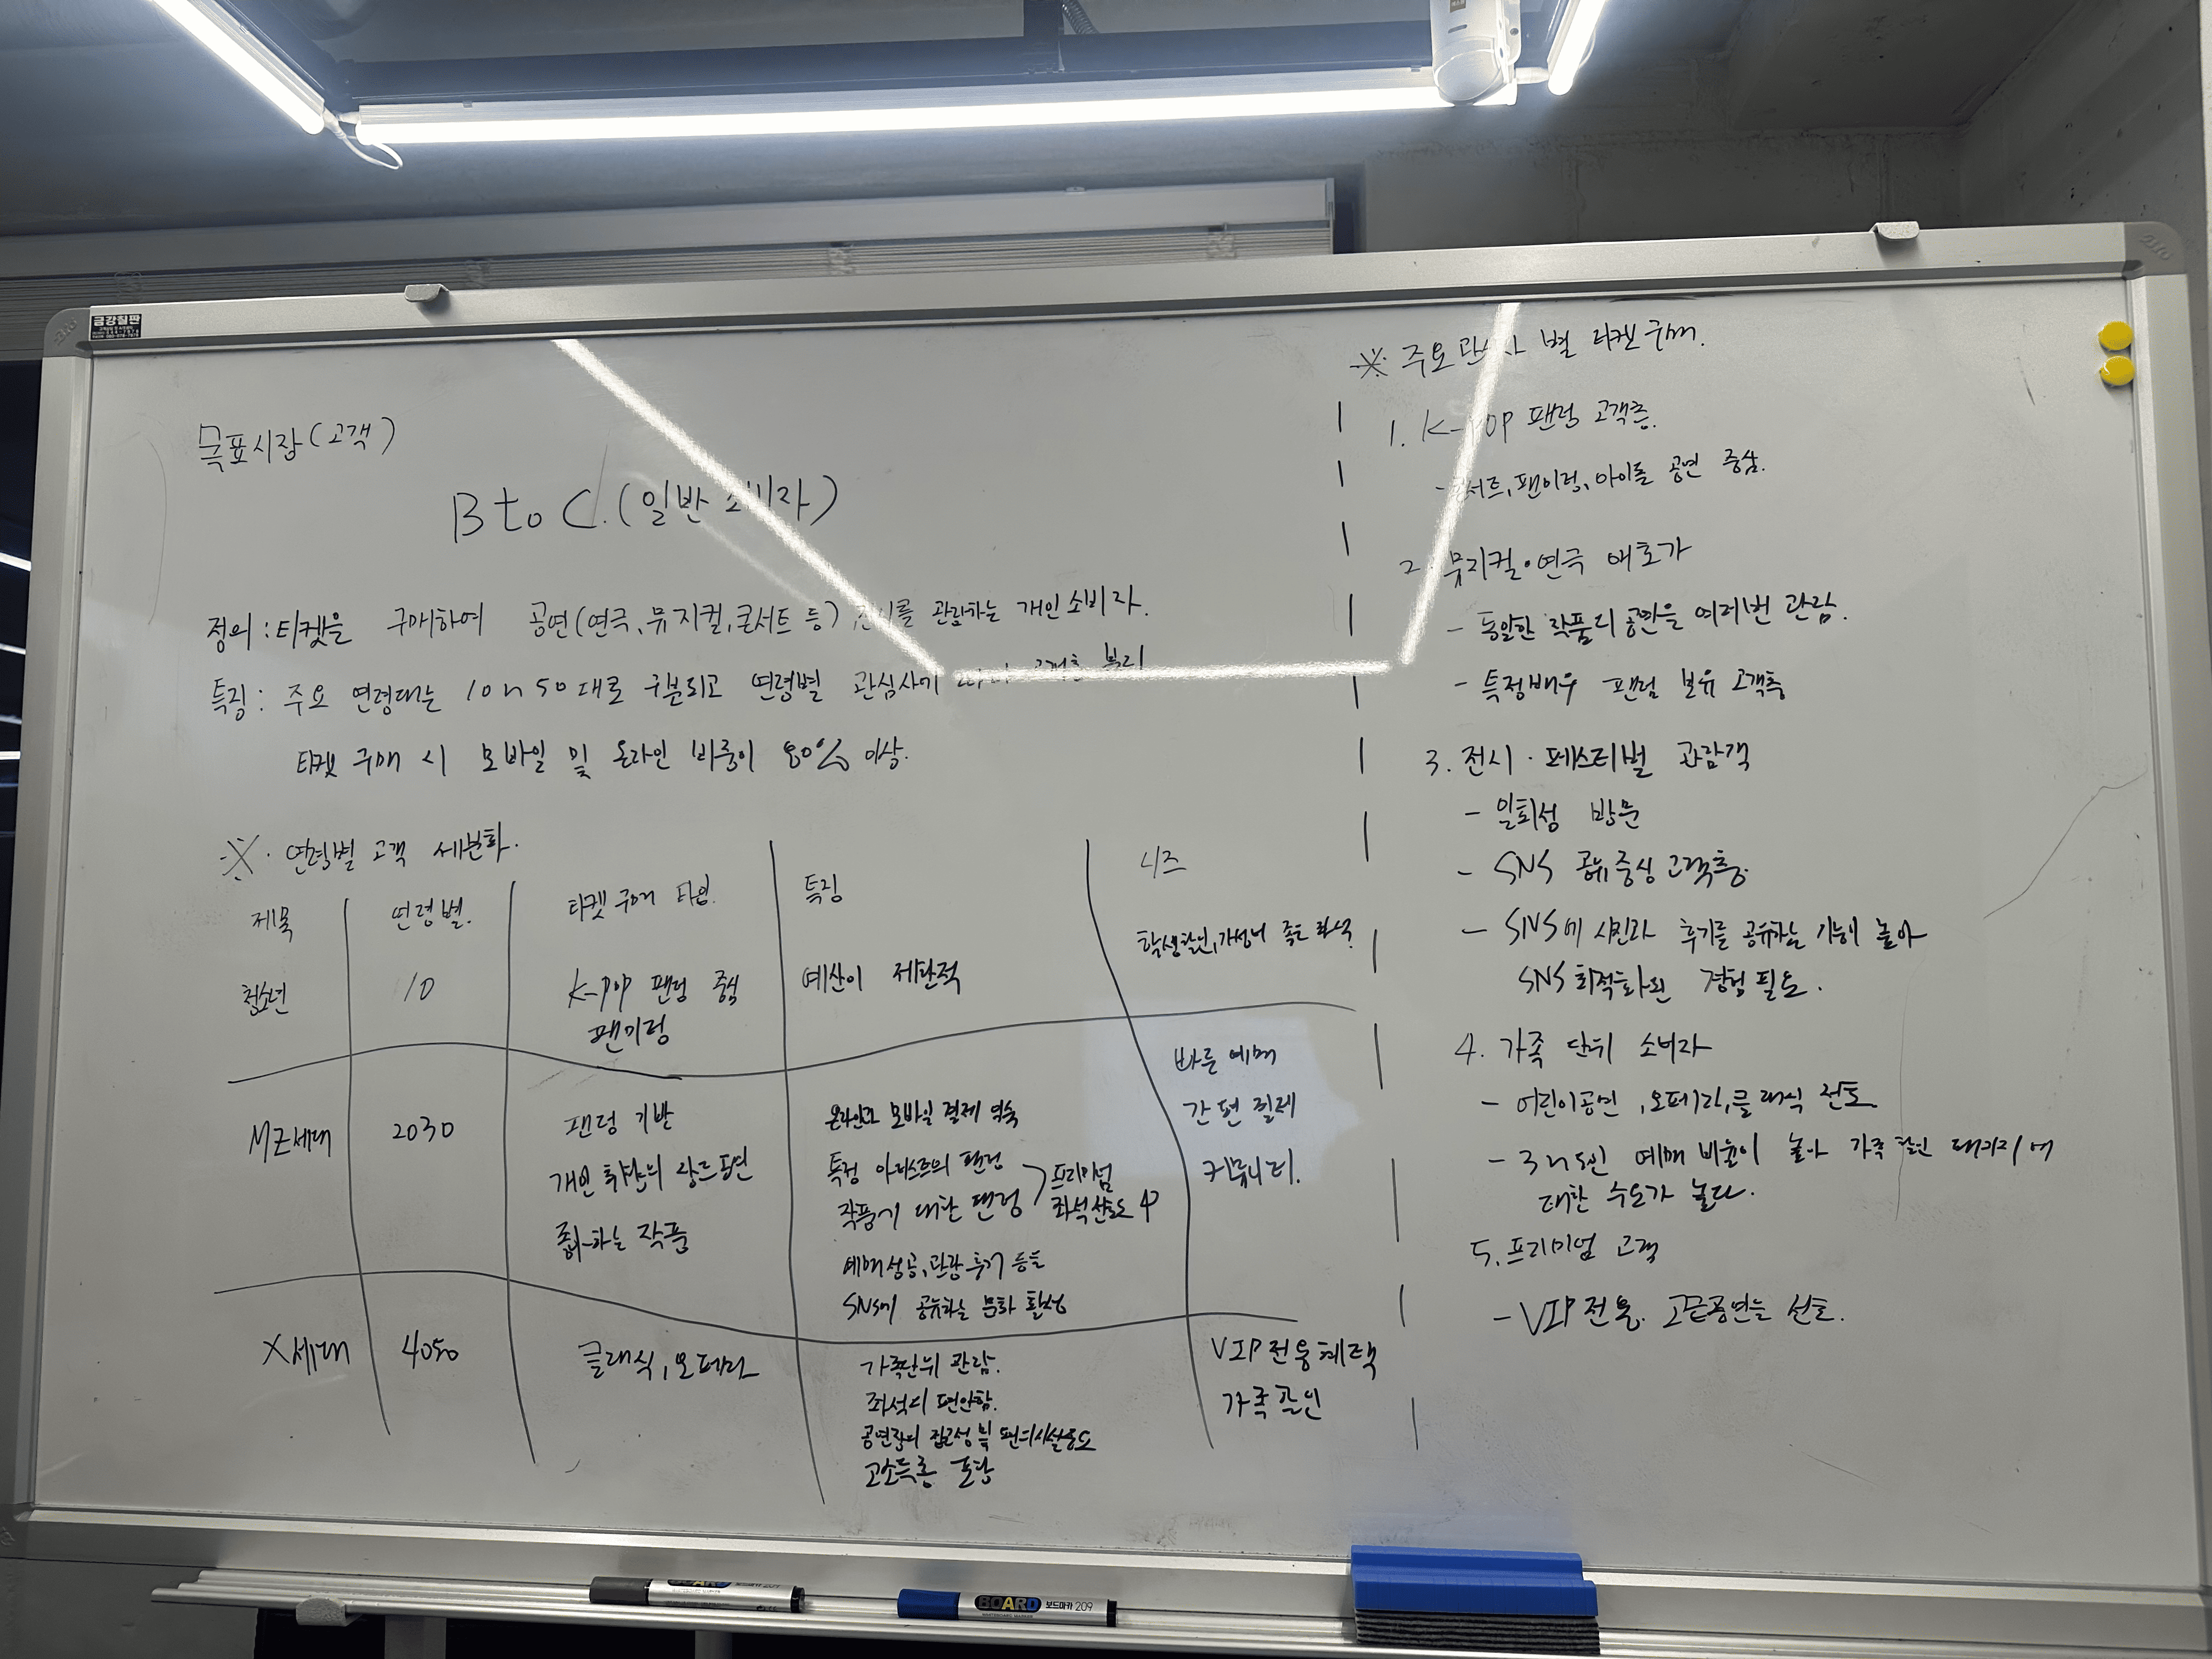 금강칠판
목표시장(고객)
B to C. (일반 소비자)
정의 : 티켓을 구매하여 공연(연극, 뮤지컬, 콘서트 등) 전시를 관람하는 개인소비자.
특징 : 주요 연령대는 10~50대로 구분되고 연령별 관심사에 고객층 분리
티켓 구매 시 모바일 및 온라인 비중이 80% 이상.
※. 연령별 고객 세분화.
제목 연령별. 티켓 구매 타입. 특징 니즈
청소년 10 K-POP 팬덤 중심 예산이 제한적 학생할인, 가성비 좋은 좌석.
팬미팅
MZ세대 2030
팬덤 기반
개인 취향의
좋아하는 작품
온라인과 모바일 결제 익숙
특정 아티스트의 팬덤
작품에 대한 팬덤
프리미엄
좌석선호도
예매성공, 관람후기 등을
SNS에 공유하는 문화 활성
빠른 예매
간편 결제
커뮤니티.
X세대 4050 클래식, 오페라
가족단위 관람.
좌석의 편안함.
공연장의 접근성 및 편의시설중요
고소득층 포함
VIP전용혜택
가족할인
※ 주요관심사 별 티켓구매.
1. K-POP 팬덤 고객층.
- 콘서트, 팬미팅, 아이돌 공연 중심.
2. 뮤지컬·연극 애호가
- 동일한 작품의 공연을 여러번 관람.
- 특정배우 팬덤 보유 고객층
3. 전시·페스티벌 관람객
- 일회성 방문
- SNS 공유중심고객층
- SNS에 사진과 후기를 공유하는 높아
SNS 최적화된 경험 필요.
4. 가족 단위 소비자
- 어린이공연, 오페라, 클래식 선호
- 3~5인 예매 비율이 높아 가족 할인 패키지에
대한 수요가 높다.
5. 프리미엄 고객
- VIP전용. 고급공연을 선호.
BOARD 보드마카 209
BOARD 보드마카 209